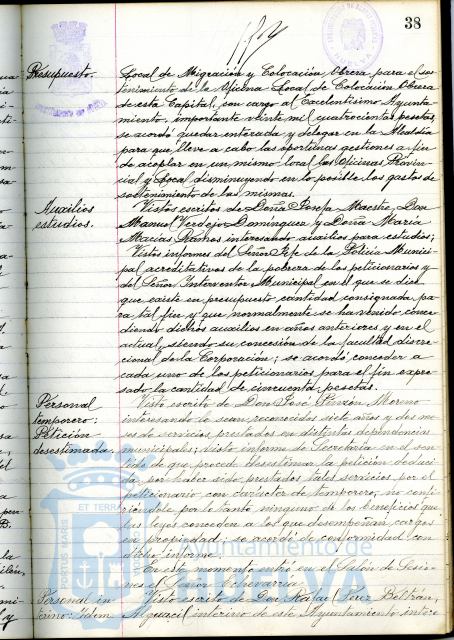 38
Presupuesto.
Local de Migración y Colocación Obrera para el sos-
tenimiento de la Oficina Local de Colocación Obrera
de esta Capital, con cargo al Excelentísimo Ayunta-
miento, importante veinte mil cuatrocientas pesetas,
se acordó quedar enterada y delegar en la Alcaldía
para que lleve a cabo las oportunas gestiones a fin
de acoplar en un mismo local las Oficinas Provin-
cial y Local disminuyendo en lo posible los gastos de
sostenimiento de las mismas.
Auxilios
estudios.
Vistos escritos de Doña Josefa Maestre, Don
Manuel Verdejo Domínguez y Doña María
Macías Ramos interesando auxilios para estudios;
Vistos informes del Señor Jefe de la Policía Munici-
pal acreditativos de la pobreza de los peticionarios y
del Señor Interventor Municipal en el que se dice
que existe en presupuesto cantidad consignada pa-
ra tal fin y que normalmente se ha venido conce-
diendo dichos auxilios en años anteriores y en el
actual, siendo su concesión de la facultad discre-
cional de la Corporación; se acordó conceder a
cada uno de los peticionarios para el fin expre-
sado la cantidad de cincuenta pesetas.
Personal
temporero;
Petición
desestimada.
Visto escrito de Don José Pinzón Moreno
interesando le sean reconocidos siete años y dos me-
ses de servicios prestados en distintas dependencias
municipales; visto informe de Secretaría en el sen-
tido de que procede desestimar la petición deduci-
da, por haber sido prestados tales servicios por el
peticionario con carácter de temporero, no confi-
riéndole por lo tanto ninguno de los beneficios que
las leyes conceden a los que desempeñan cargos
en propiedad; se acordó de conformidad con
dicho informe.
En este momento entró en el Salón de Sesio-
nes el Señor Echevarría.
Personal in-
terino: Idem
Visto escrito de Don Rafael Pérez Beltrán,
Alguacil interino de este Ayuntamiento intere-
ET TERRA
PORTUS MARIS
Ayuntamiento de